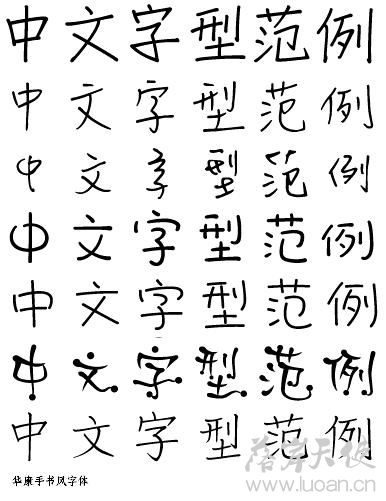 中文字型范例
中文字型范例
中文字型范例
中文字型范例
中文字型范例
中文字型范例
中文字型范例
华康手书风字体
www.luoan.cn